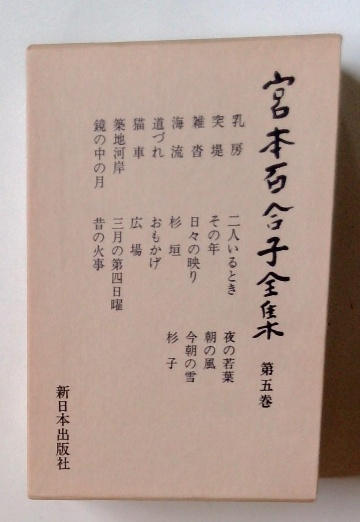 宮本百合子全集 第五巻
乳房
突堤
雑沓
海流
道づれ
猫車
築地河岸
鏡の中の月
二人いるとき
その年
日々の映り
杉垣
おもかげ
広場
三月の第四日曜
昔の火事
夜の若葉
朝の風
今朝の雪
杉子
新日本出版社